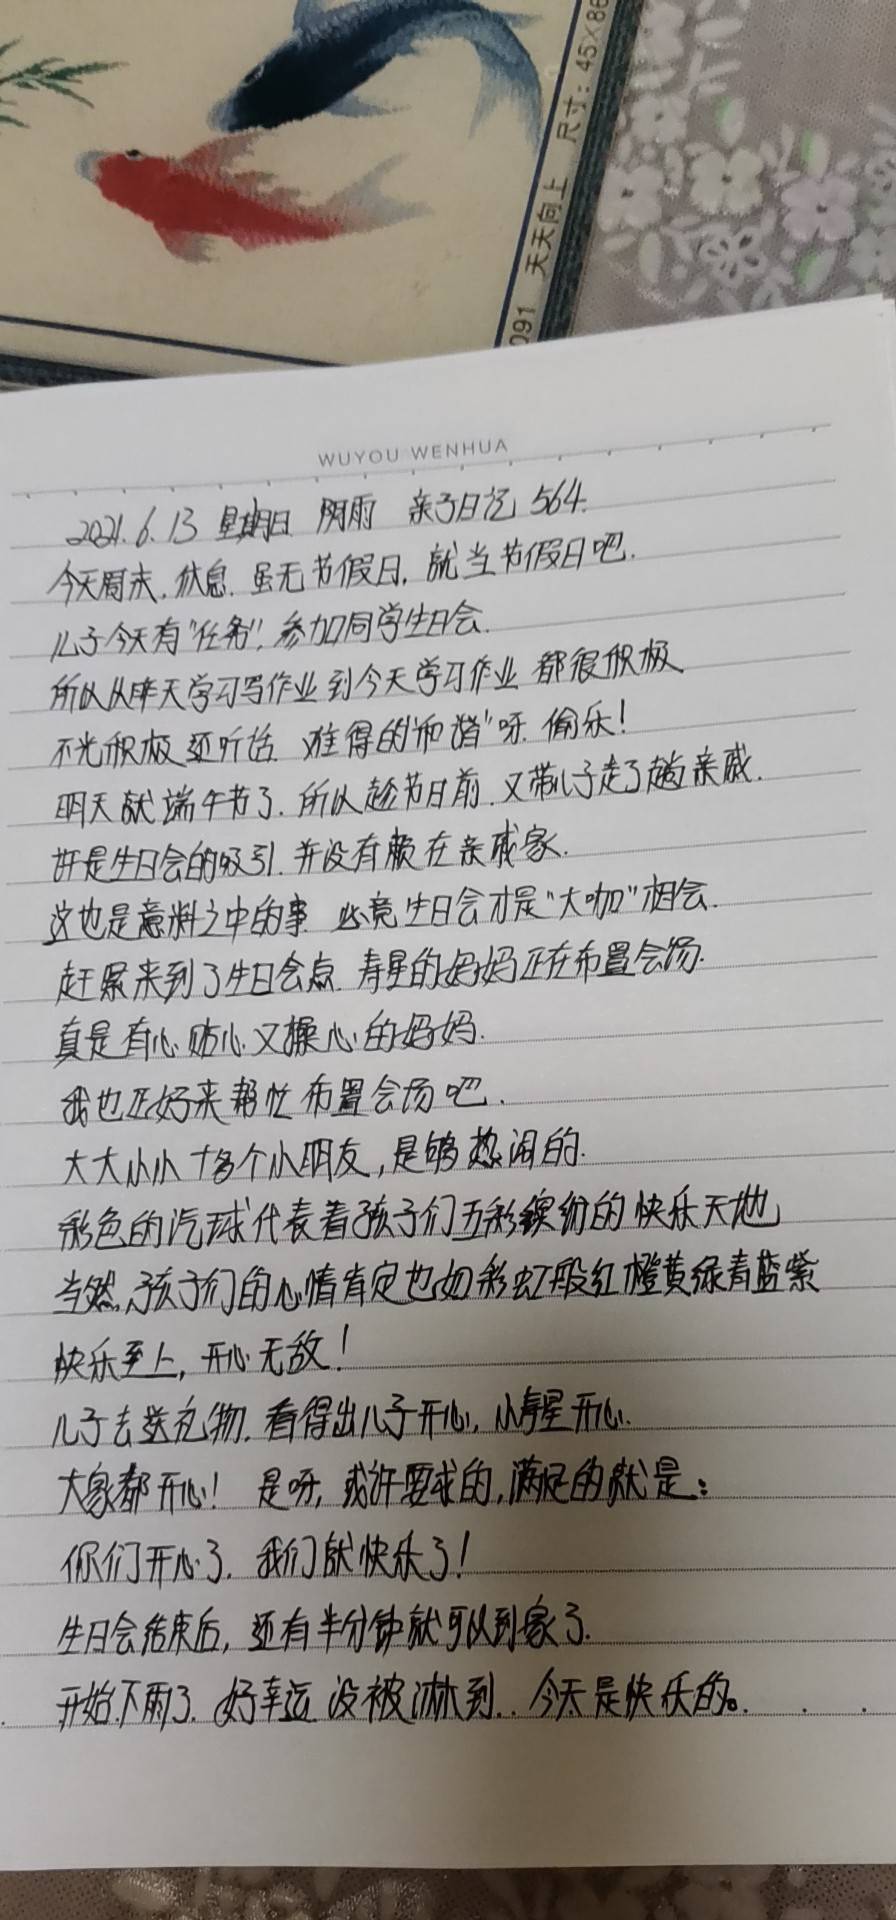 091 天天向上 尺寸：45×86
WUYOU WENHUA
2021.6.13 星期日 阴雨 亲子日记 564.
今天周末.休息.虽无节假日，就当节假日吧.
儿子今天有“任务”，参加同学生日会.
所以从昨天学习写作业到今天学习作业 都很积极
不光积极 还听话 难得的“和谐”呀.偷乐！
明天就端午节了.所以趁节日前.又带儿子走了趟亲戚.
许是生日会的吸引.并没有赖在亲戚家.
这也是意料之中的事 必竟生日会才是“大咖”相会.
赶紧来到了生日会点.寿星的妈妈正在布置会场.
真是有心贴心又操心的妈妈.
我也正好来帮忙布置会场吧.
大大小小十多个小朋友，是够热闹的.
彩色的汽球代表着孩子们五彩缤纷的快乐天地
当然，孩子们的心情肯定也如彩虹般红橙黄绿青蓝紫
快乐至上，开心无敌！
儿子去送礼物.看得出儿子开心，小寿星开心.
大家都开心！是呀，或许要求的，满足的就是：
你们开心了.我们就快乐了！
生日会结束后，还有半分钟就可以到家了.
开始下雨了.好幸运 没被淋到..今天是快乐的。